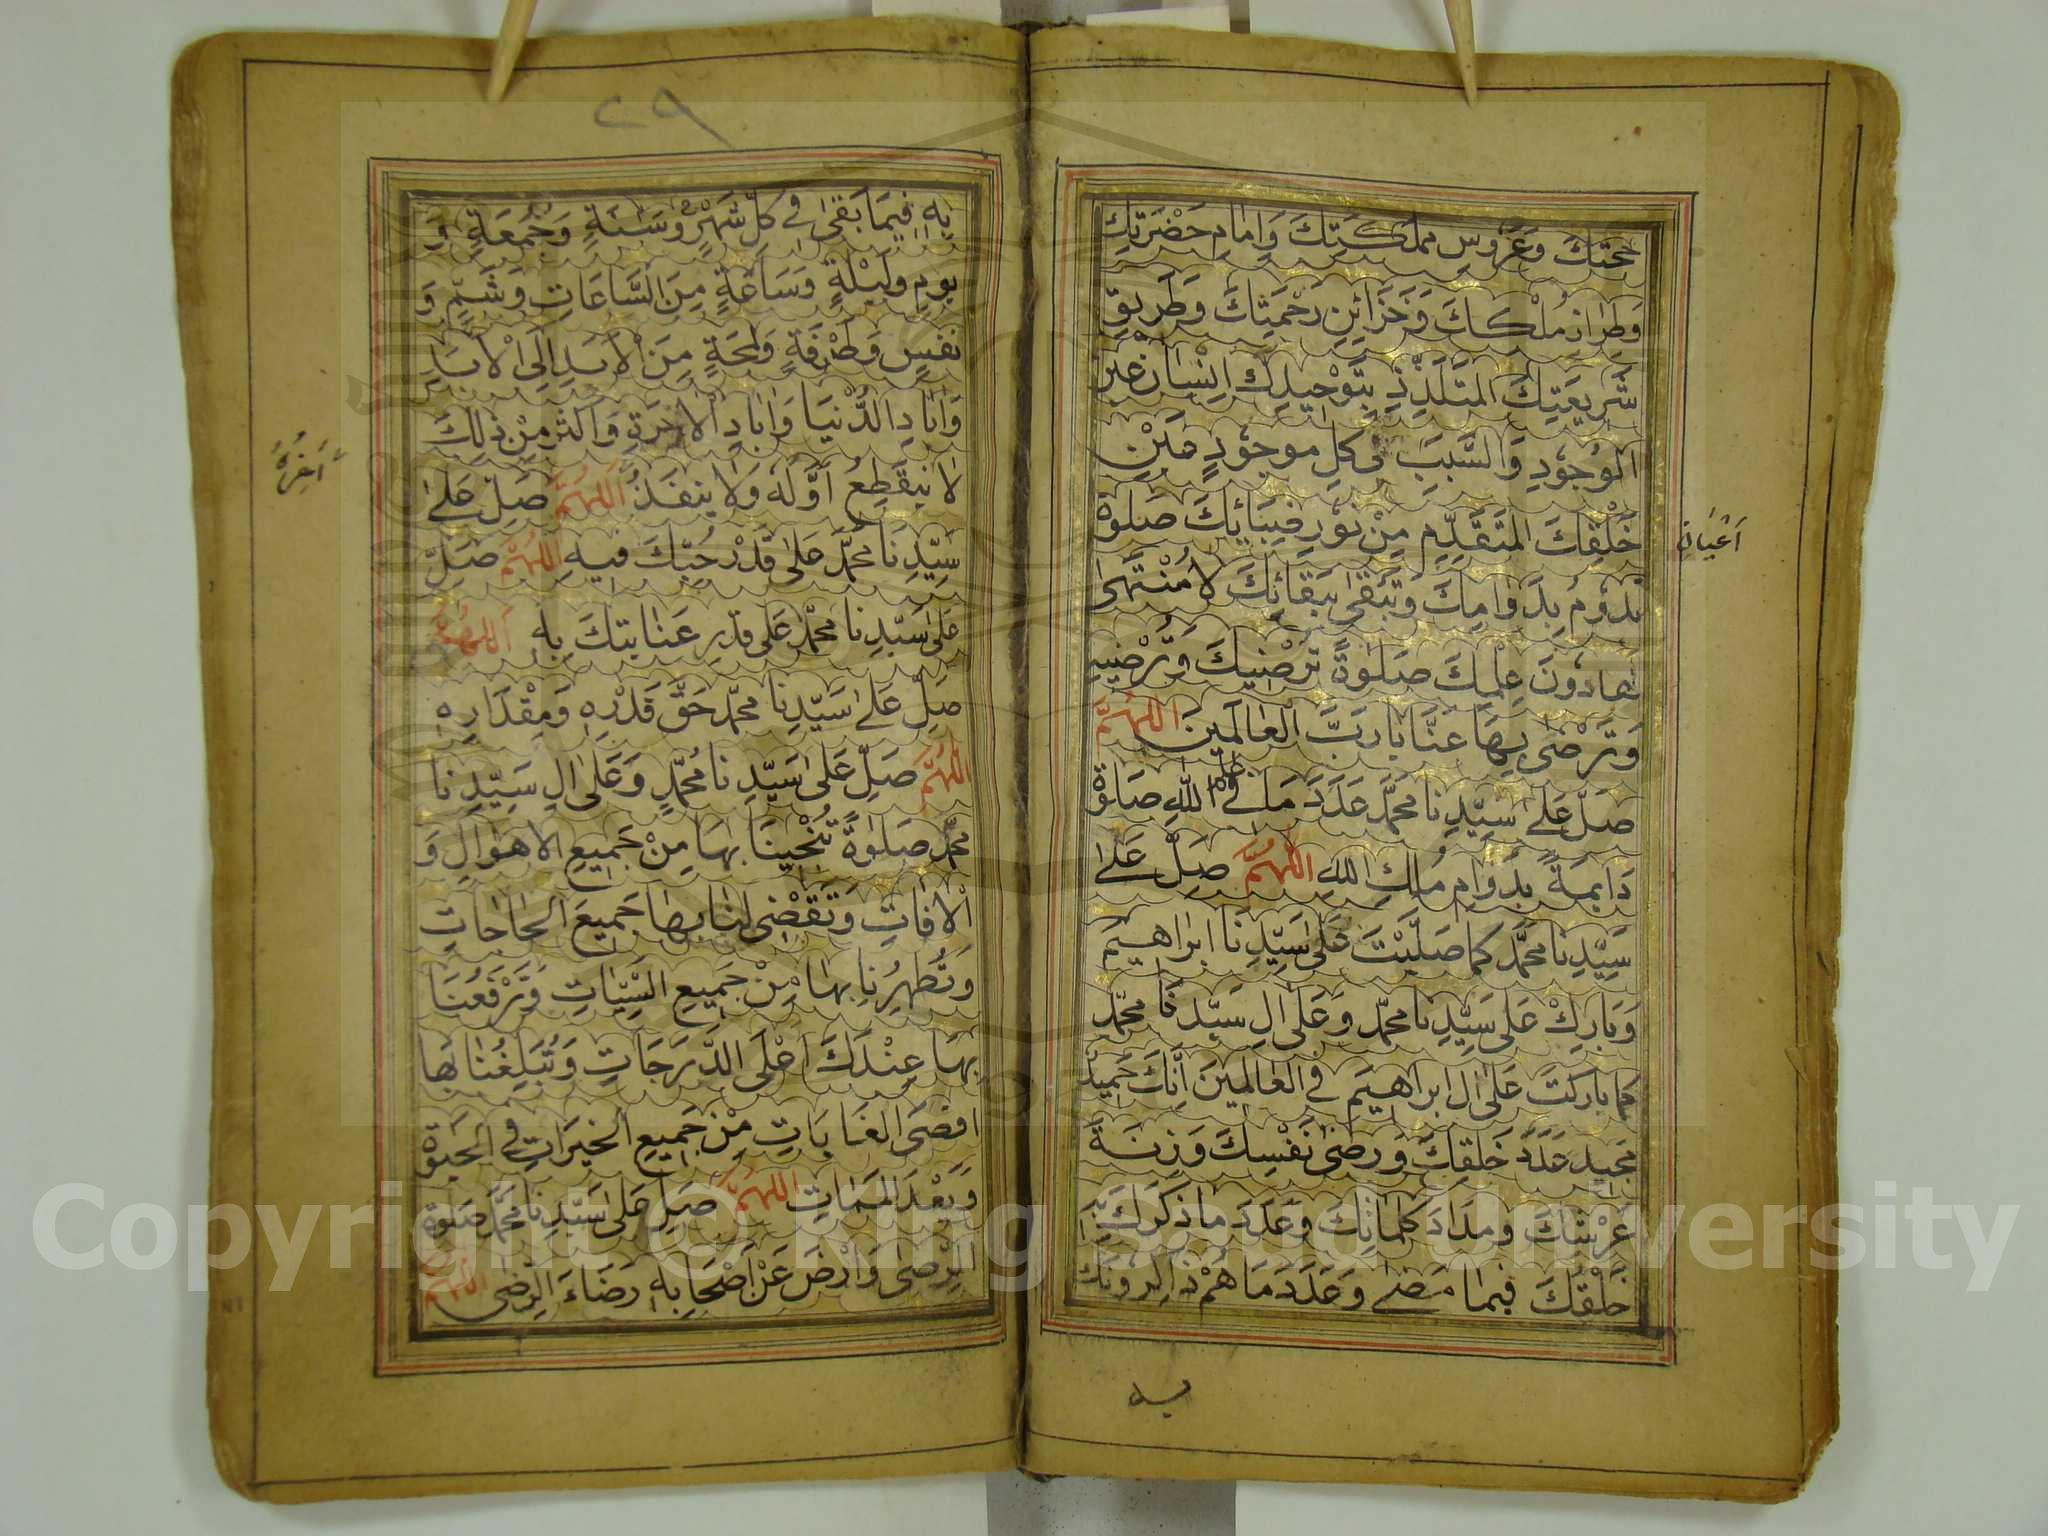 حجتك وَعَرُوسِ مملكَتِكَ وَاِمَامِ حَضْرَتِكَ
وَطِرَازِ مُلْكِكَ وَخَزَائِنِ رَحْمَتِكَ وَطَرِيقِ
شَرِيعَتِكَ المُتَلَذِّذِ بِتَوْحِيدِكَ اِنْسَانِ عَيْنِ
الوُجُودِ وَالسَّبَبِ فى كلِ موجُودٍ عَيْنِ
اَعْيَانِ
خَلْقِكَ المُتَقَدِّمِ مِنْ نُورِ ضِيَائِكَ صَلوةً
تَدُومُ بِدَوَامِكَ وَتَبْقَى بِبَقَائِكَ لَا مُنْتَهَى
لهَا دُونَ عِلْمِكَ صَلوةً تُرْضِيكَ وَتُرْضِيهِ
وَتَرْضَى بِهَا عَنَّا يَا رَبَّ الْعَالَمِينَ اللهُمَّ
صَلِّ عَلى سَيِّدِنَا محَمَّدٍ عَدَدَ مَا فى علم اللهِ صَلوةً
دَايمةً بِدَوَامِ مُلكِ اللهِ اللهُمَّ صَلِّ عَلى
سَيِّدِنَا محَمَّدٍ كما صَلَّيْتَ عَلى سَيِّدِنَا ابراهيمَ
وَبَارِكْ عَلى سَيِّدِنا محمّد وَعَلى الِ سَيّدنَا محمّد
كما بارَكتَ عَلى الِ ابراهيمَ فى العَالَمِينَ اِنَّكَ حَمِيدٌ
مجيد عَدَدَ خَلقِكَ وَرِضى نَفْسِكَ وَزِنَةَ
عَرْشِكَ وَمِدَادَ كلماتِكَ وَعَدَدَ ما ذَكَرَكَ بِهِ
خَلْقُكَ فيما مَضى وَعَدَدَ مَا هُمْ ذَاكِرُونَكَ
به
٢٩
بِهِ فِيمَا بَقَى فى كلِّ شَهْرٍ وَسَنَةٍ وَجُمعَةٍ وَ
يومٍ وَلَيْلَةٍ وَسَاعَةٍ مِنَ السَّاعَاتِ وَشَمٍّ وَ
نفَسٍ وَطَرْفَةٍ وَلمحَةٍ مِنَ الاَبَدِ اِلَى الاَبَدِ
وَابَادِ الدُّنْيَا وَابَادِ الاخِرَةِ وَاكثر مِنْ ذلِكَ
لا يَنقَطِعُ اَوَّلَهُ وَلا يَنفَدُ اللهُمَّ صَلِّ عَلى
اَخِرُهُ
سَيِّدِنَا محَمَّدٍ عَلى قَدْرِ حُبِّكَ فيهِ اللهُمَّ صَلِّ
عَلى سَيِّدِنَا محمّد عَلى قدرِ عَنَايتكَ بِهِ اَللهُمَّ
صَلِّ عَلى سَيّدِنا محمّد حَقَّ قَدْرِهِ وَمِقْدَارِهِ
اللهُمَّ صَلِّ عَلى سَيِّدِنا مُحَمَّدٍ وَعَلى الِ سَيِّدِنا
محمّدٍ صَلوةً تُنْجِينَا بهَا مِنْ جَمِيعِ الاهوَالِ وَ
الافاتِ وَتَقْضِى لنا بهَا جَمِيعَ الحَاجَاتِ
وَتُطهِّرُنا بهَا مِنْ جَمِيعِ السَّيّاتِ وَتَرْفَعُنَا
بِهَا عِنْدَكَ اَعْلَى الدَّرَجَاتِ وَتُبَلِّغُنَا بهَا
اقصَى الغَايَاتِ مِنْ جَمِيعِ الخَيرَاتِ فى الحَيوةِ
وَبَعْدَ المَمَاتِ اللهُمَّ صَلِّ عَلى سَيّدِنا محَمَّدٍ صَلوةَ
الرِّضى وَارْضَ عَنْ اَصْحَابِهِ رِضَاءَ الرِّضى اللهُمَّ
Copyright © King Saud University